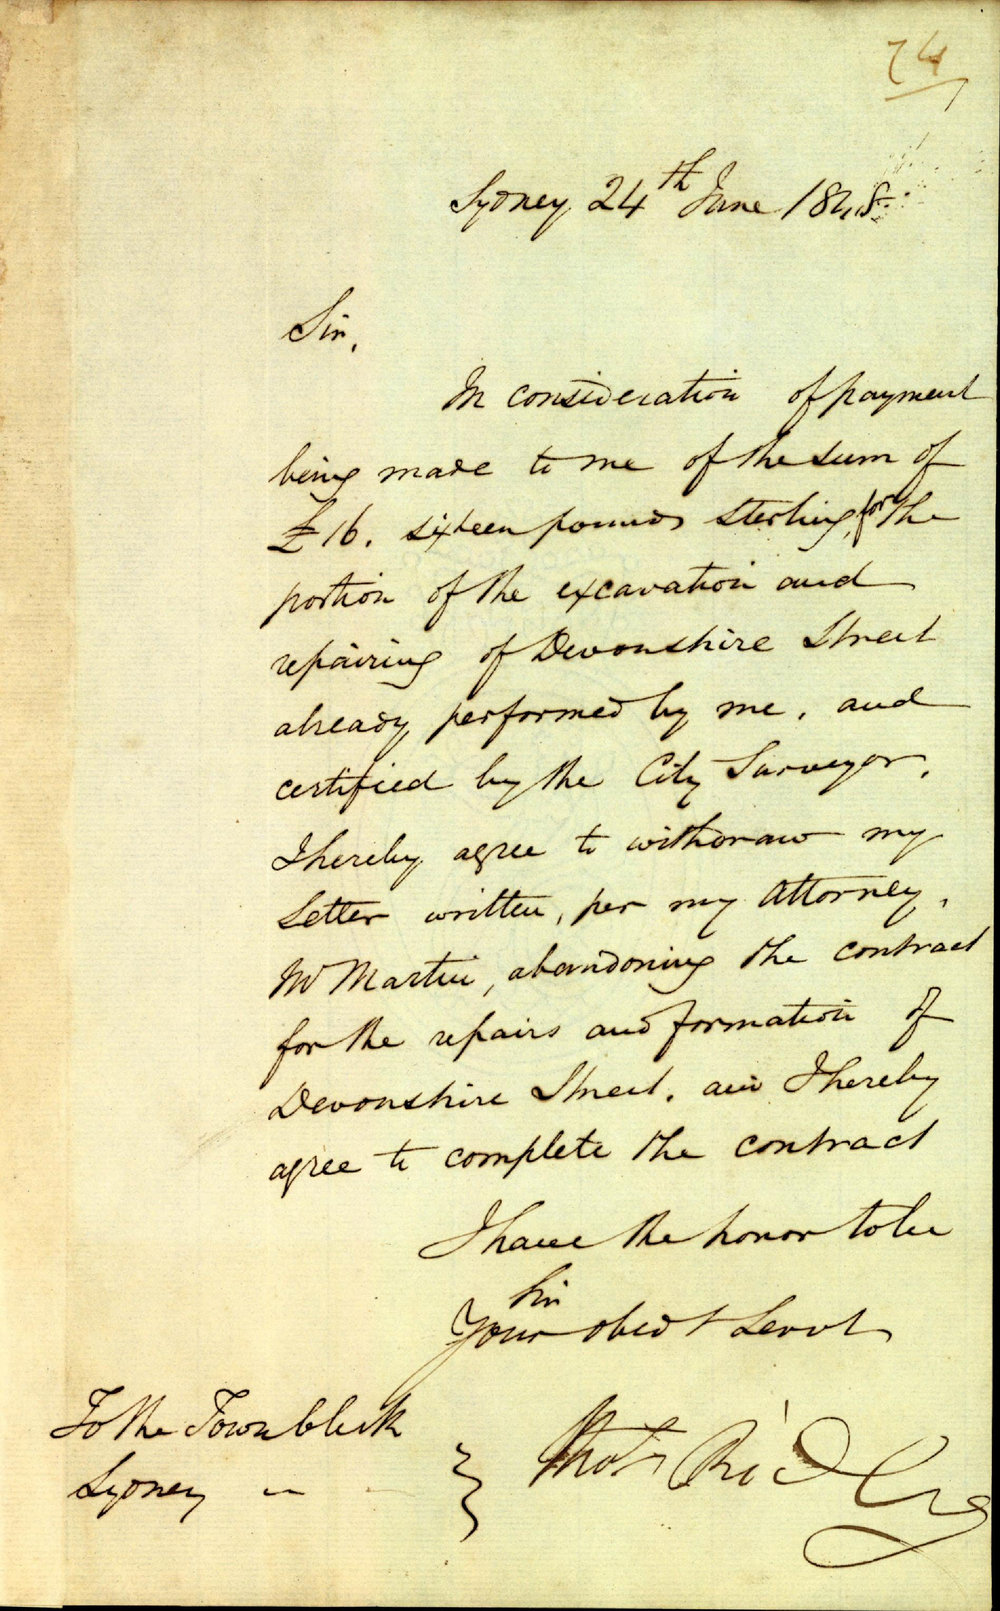 74
Sydney 24th June 1848.
Sir,
In consideration of payment
being made to me of the sum of
£16. sixteen pounds sterling, for the
portion of the excavation and
repairing of Devonshire Street
already performed by me, and
certified by the City Surveyor.
I hereby agree to withdraw my
Letter written, per my Attorney,
Mr Martin, abandoning the contract
for the repairs and formation of
Devonshire Street. and I hereby
agree to complete the contract
I have the honor to be
Sir
Your obedt Servt
Thos Ridley
To the Town Clerk
Sydney